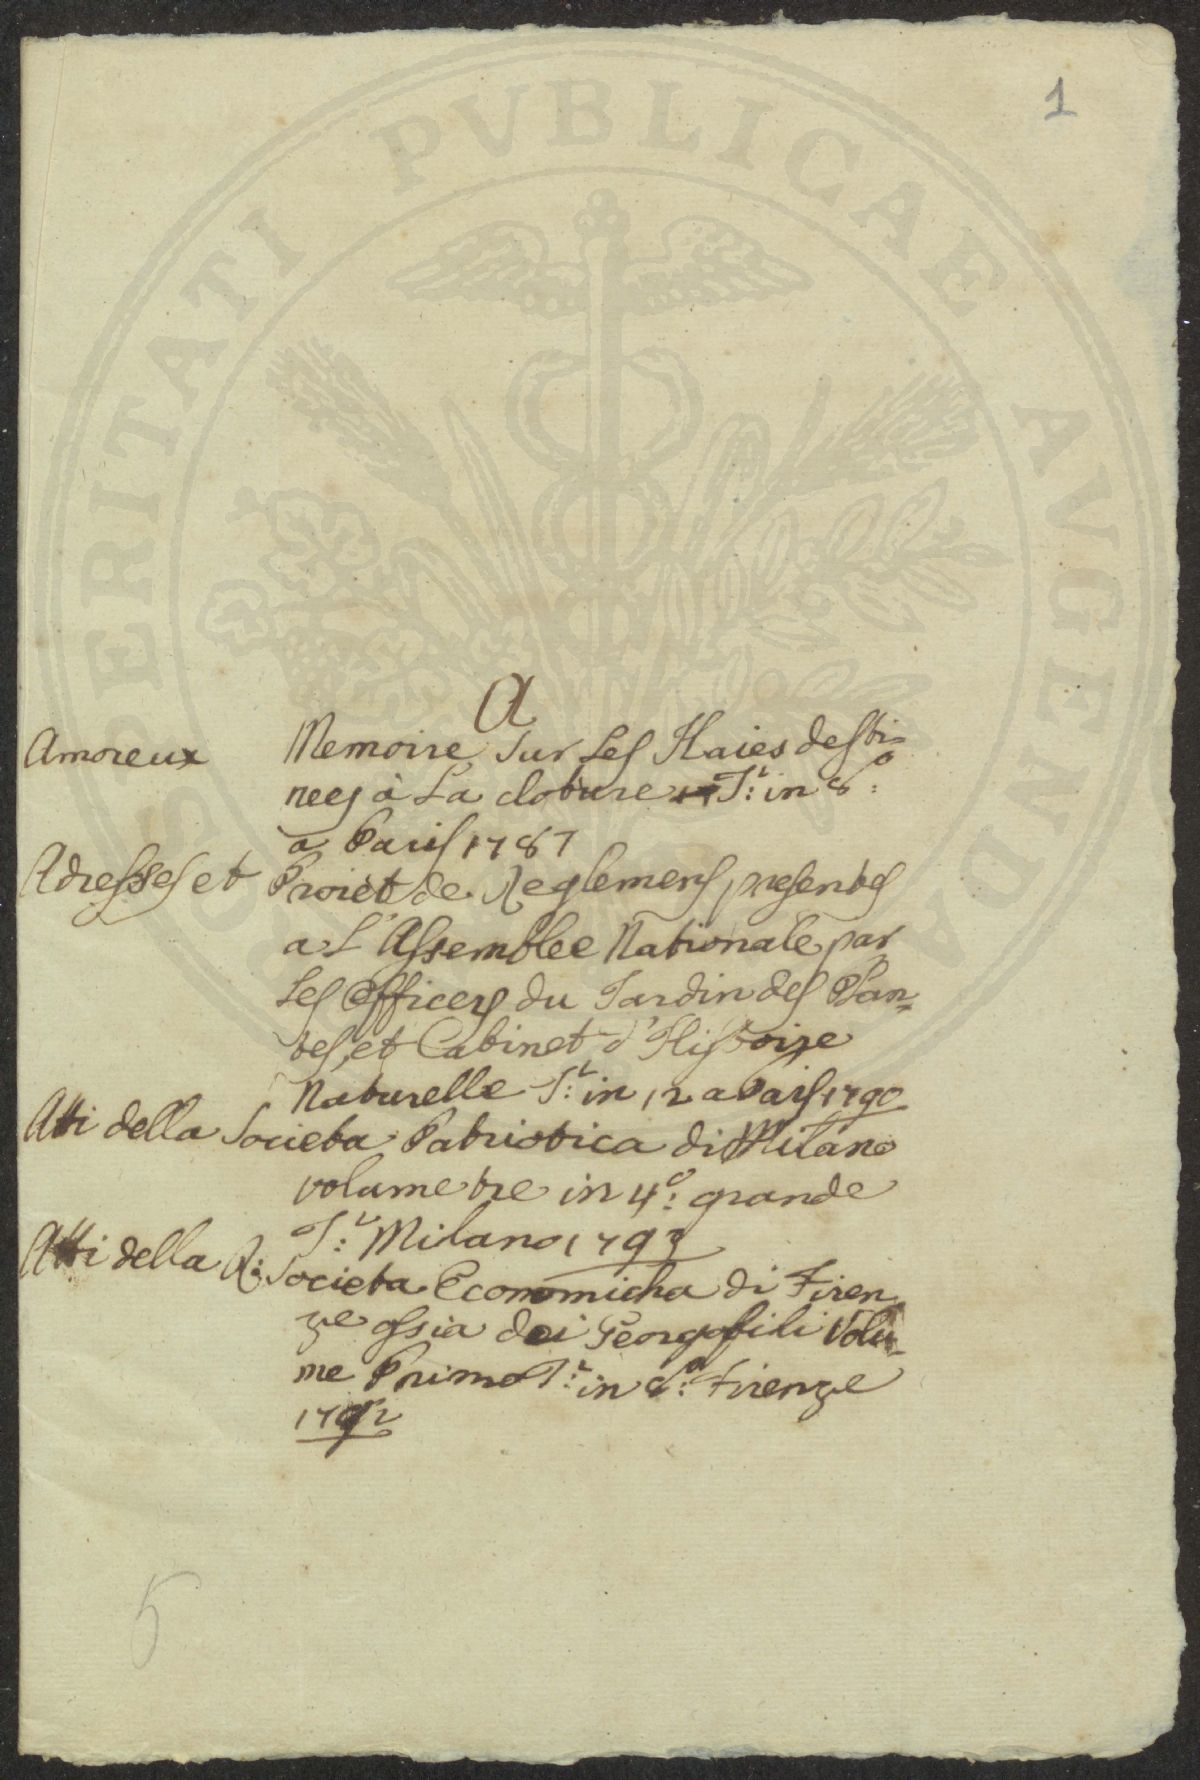 1
PROSPERITATI PVBLICAE AVGENDAE
A
Amoreux Memoire sur Les Haies desti-
nees à La cloture T.: in 8.°
a Paris 1787
Adresses et Proiet de Reglemens presentes
a L'Assemblee Nationale par
Les Officers du Jardin des Plan-
tes, et Cabinet d'Histoire
Naturelle T.: in 12 a Paris 1790
Atti della Societa Patriotica di Milano
volume tre in 4.° grande
T.: Milano 1793
Atti della R: Societa Economicha di Firen
ze ossia dei Georgofili Volu-
me Primo T.: in 8.° Firenze
1792
5